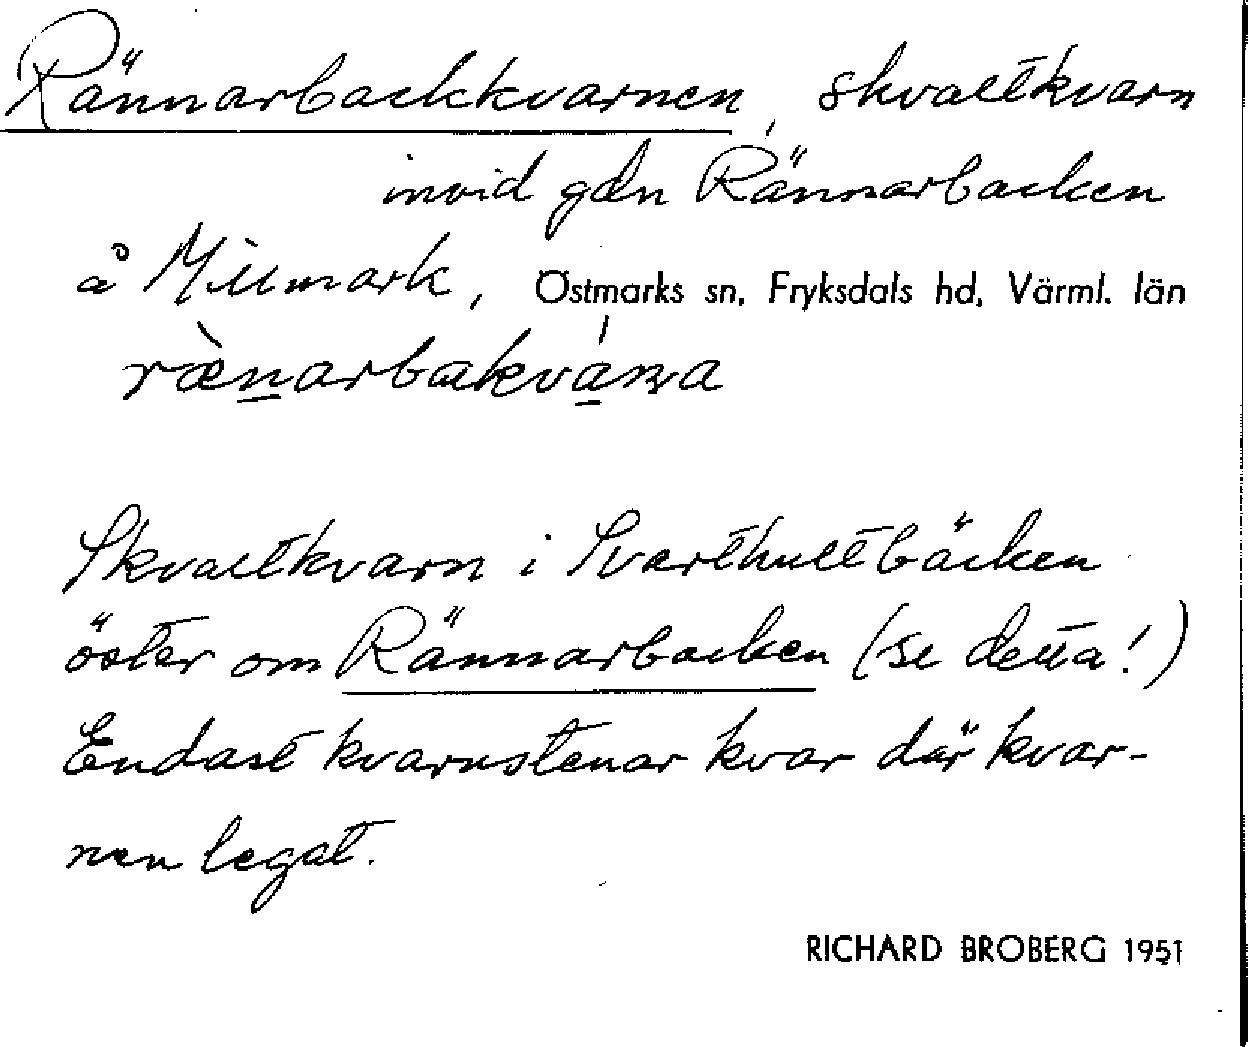 Rännarbackkvarnen, skvaltkvarn
invid gdn Rännarbacken
å Millmark, Östmarks sn, Fryksdals hd, Värml. län
ræ̀n̲arbakvá̲ɳa
Skvaltkvarn i Svarthultbäcken
öster om Rännarbacken (se detta!)
Endast kvarnstenar kvar där kvar-
nen legat.
RICHARD BROBERG 1951